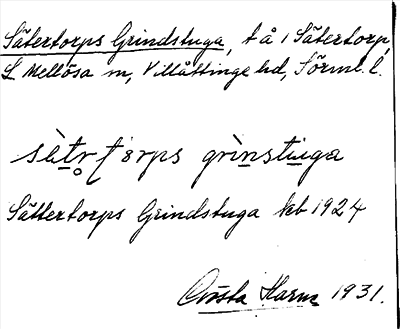 Sätertorps Grindstuga, t å i Sätertorp,
L Mellösa sn, Villåttinge hd, Sörml. l.
sà̀tr̥ tårps grìnstuga
Sättertorps Grindstuga kb 1924
Gösta Harm 1931.